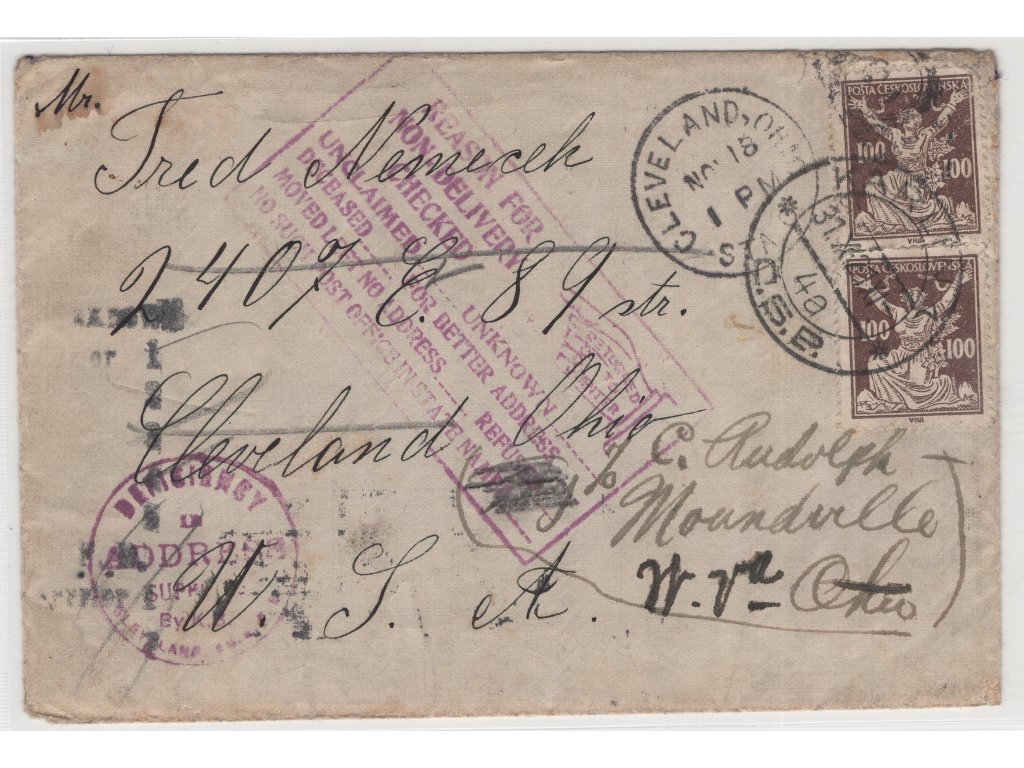 Mr.
Fred Nemecek
2407 E. 89 str.
Cleveland Ohio
U. S. A.
% C. Rudolph
Moundville
W. Va Ohio
CLEVELAND, OHIO
NOV 18
1 PM
S
POŠTA ČESKOSLOVENSKÁ
100 100
POŠTA ČESKOSLOVENSKÁ
100 100
31.X
Č.S.P.
40
REASON FOR
NON-DELIVERY
CHECKED
UNCLAIMED UNKNOWN
DECEASED FOR BETTER ADDRESS
MOVED LEFT NO ADDRESS REFUSED
NO SUCH POST OFFICE IN STATE NAMED
DEFICIENCY
IN
ADDRESS
SUPPLIED
By